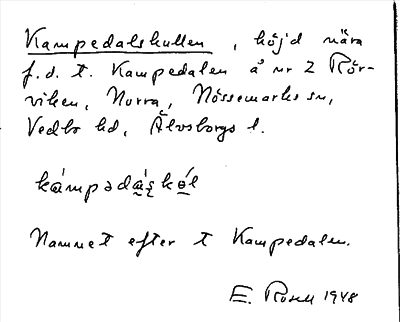 Kampedalskullen, höjd nära
f.d. t. Kampedalen å nr 2 Rör-
viken, Norra, Nössemarks sn,
Vedbo hd, Älvsborgs l.
kámpədá̱s̱kó̱l
Namnet efter t Kampedalen.
E. 1948